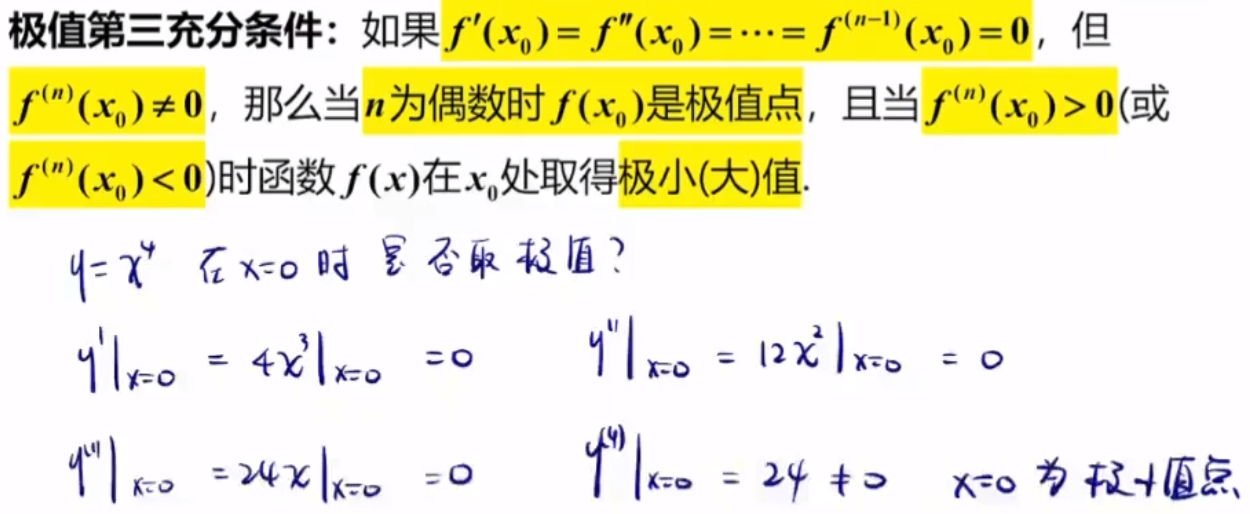 极值第三充分条件：如果f′(x₀)=f″(x₀)=⋯=f⁽ⁿ⁻¹⁾(x₀)=0，但
f⁽ⁿ⁾(x₀)≠0，那么当n为偶数时f(x₀)是极值点，且当f⁽ⁿ⁾(x₀)>0(或
f⁽ⁿ⁾(x₀)<0)时函数f(x)在x₀处取得极小(大)值.
y=x⁴ 在 x=0 时 是否取极值？
y'|x=0 = 4x³|x=0 =0 y''|x=0 = 12x²|x=0 = 0
y'''|x=0 =24x|x=0 =0 y⁽⁴⁾|x=0 = 24 ≠0 x=0 为极小值点